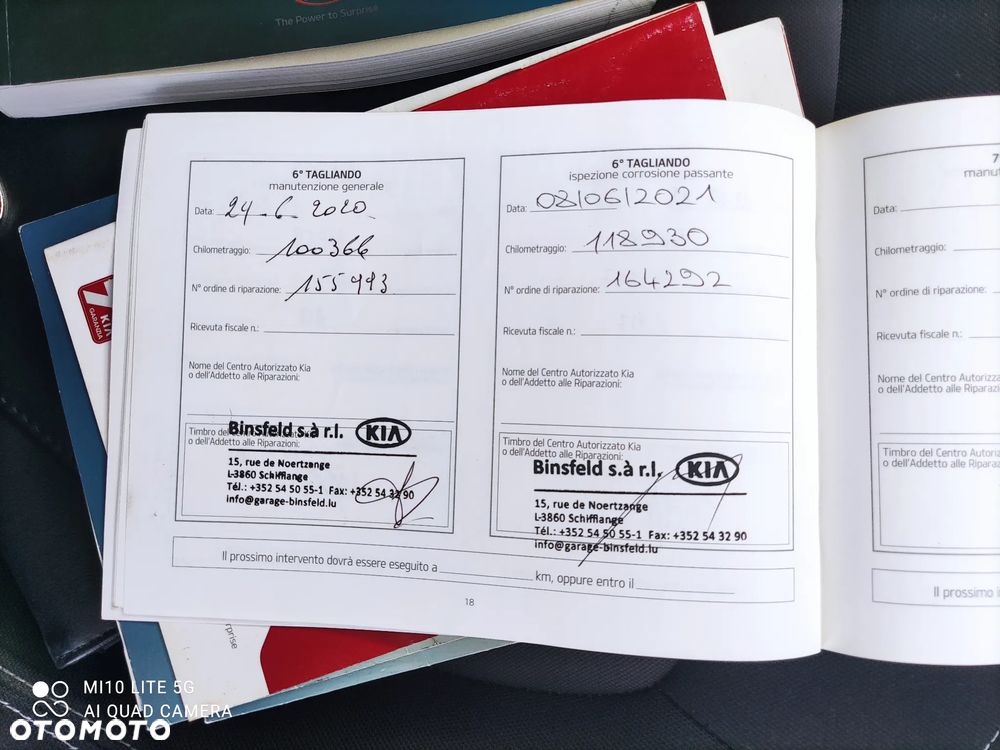 The Power to Surprise
6° TAGLIANDO
manutenzione generale
Data: 24-6-2020
Chilometraggio: 100366
N° ordine di riparazione: 155993
Ricevuta fiscale n.:
Nome del Centro Autorizzato Kia
o dell'Addetto alle Riparazioni:
Timbro del
o dell'Addetto alle Riparazioni:
Binsfeld s.à r.l. KIA
15, rue de Noertzange
L-3860 Schifflange
Tél.: +352 54 50 55-1 Fax: +352 54 32 90
info@garage-binsfeld.lu
6° TAGLIANDO
ispezione corrosione passante
Data: 08/06/2021
Chilometraggio: 118930
N° ordine di riparazione: 164292
Ricevuta fiscale n.:
Nome del Centro Autorizzato Kia
o dell'Addetto alle Riparazioni:
Timbro del Centro Autorizzato Kia
o dell'Addetto alle Riparazioni:
Binsfeld s.à r.l. KIA
15, rue de Noertzange
L-3860 Schifflange
Tél.: +352 54 50 55-1 Fax: +352 54 32 90
info@garage-binsfeld.lu
Il prossimo intervento dovrà essere eseguito a km, oppure entro il
18
7
manut
Data:
Chilometraggio:
N° ordine di riparazione:
Ricevuta fiscale n.:
Nome del Centro Autorizza
o dell'Addetto alle Riparazi
Timbro del Centro Autorizz
o dell'Addetto alle Riparazi
Il prossimo i
KIA
GARANZIA
rprise
MI10 LITE 5G
AI QUAD CAMERA
OTOMOTO